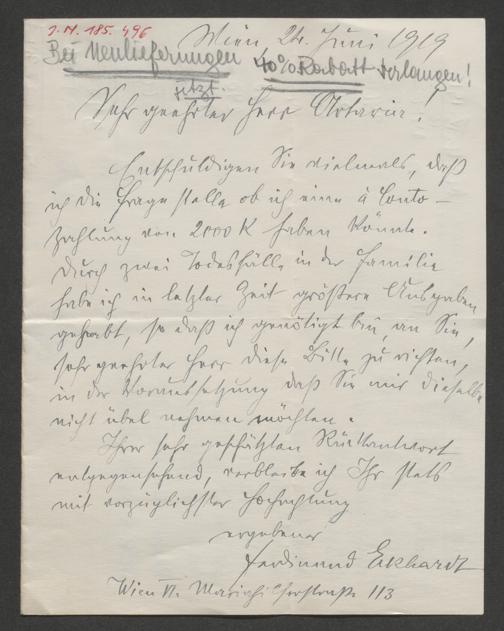 J.N. 185.496
Wien, 24. Juni 1919
Bei Neulieferungen 40% Rabatt verlangen!
jetzt.
Sehr geehrter Herr Artaria!
Entschuldigen Sie vielmals, daß
ich die Frage stelle ob ich eine à Conto-
Zahlung von 2000 K haben könnte.
Durch zwei Todesfälle in der Familie
habe ich in letzter Zeit größere Ausgaben
gehabt, so daß ich genötigt bin, an Sie,
sehr geehrter Herr diese Bitte zu richten,
in der Voraussetzung daß Sie mir dieselbe
nicht übel nehmen möchten.
Ihrer sehr geschätzten Rückantwort
entgegensehend, verbleibe ich Ihr stets
mit vorzüglichster Hochachtung
ergebener
Ferdinand Ekhardt
Wien VI. Mariahilferstraße 113